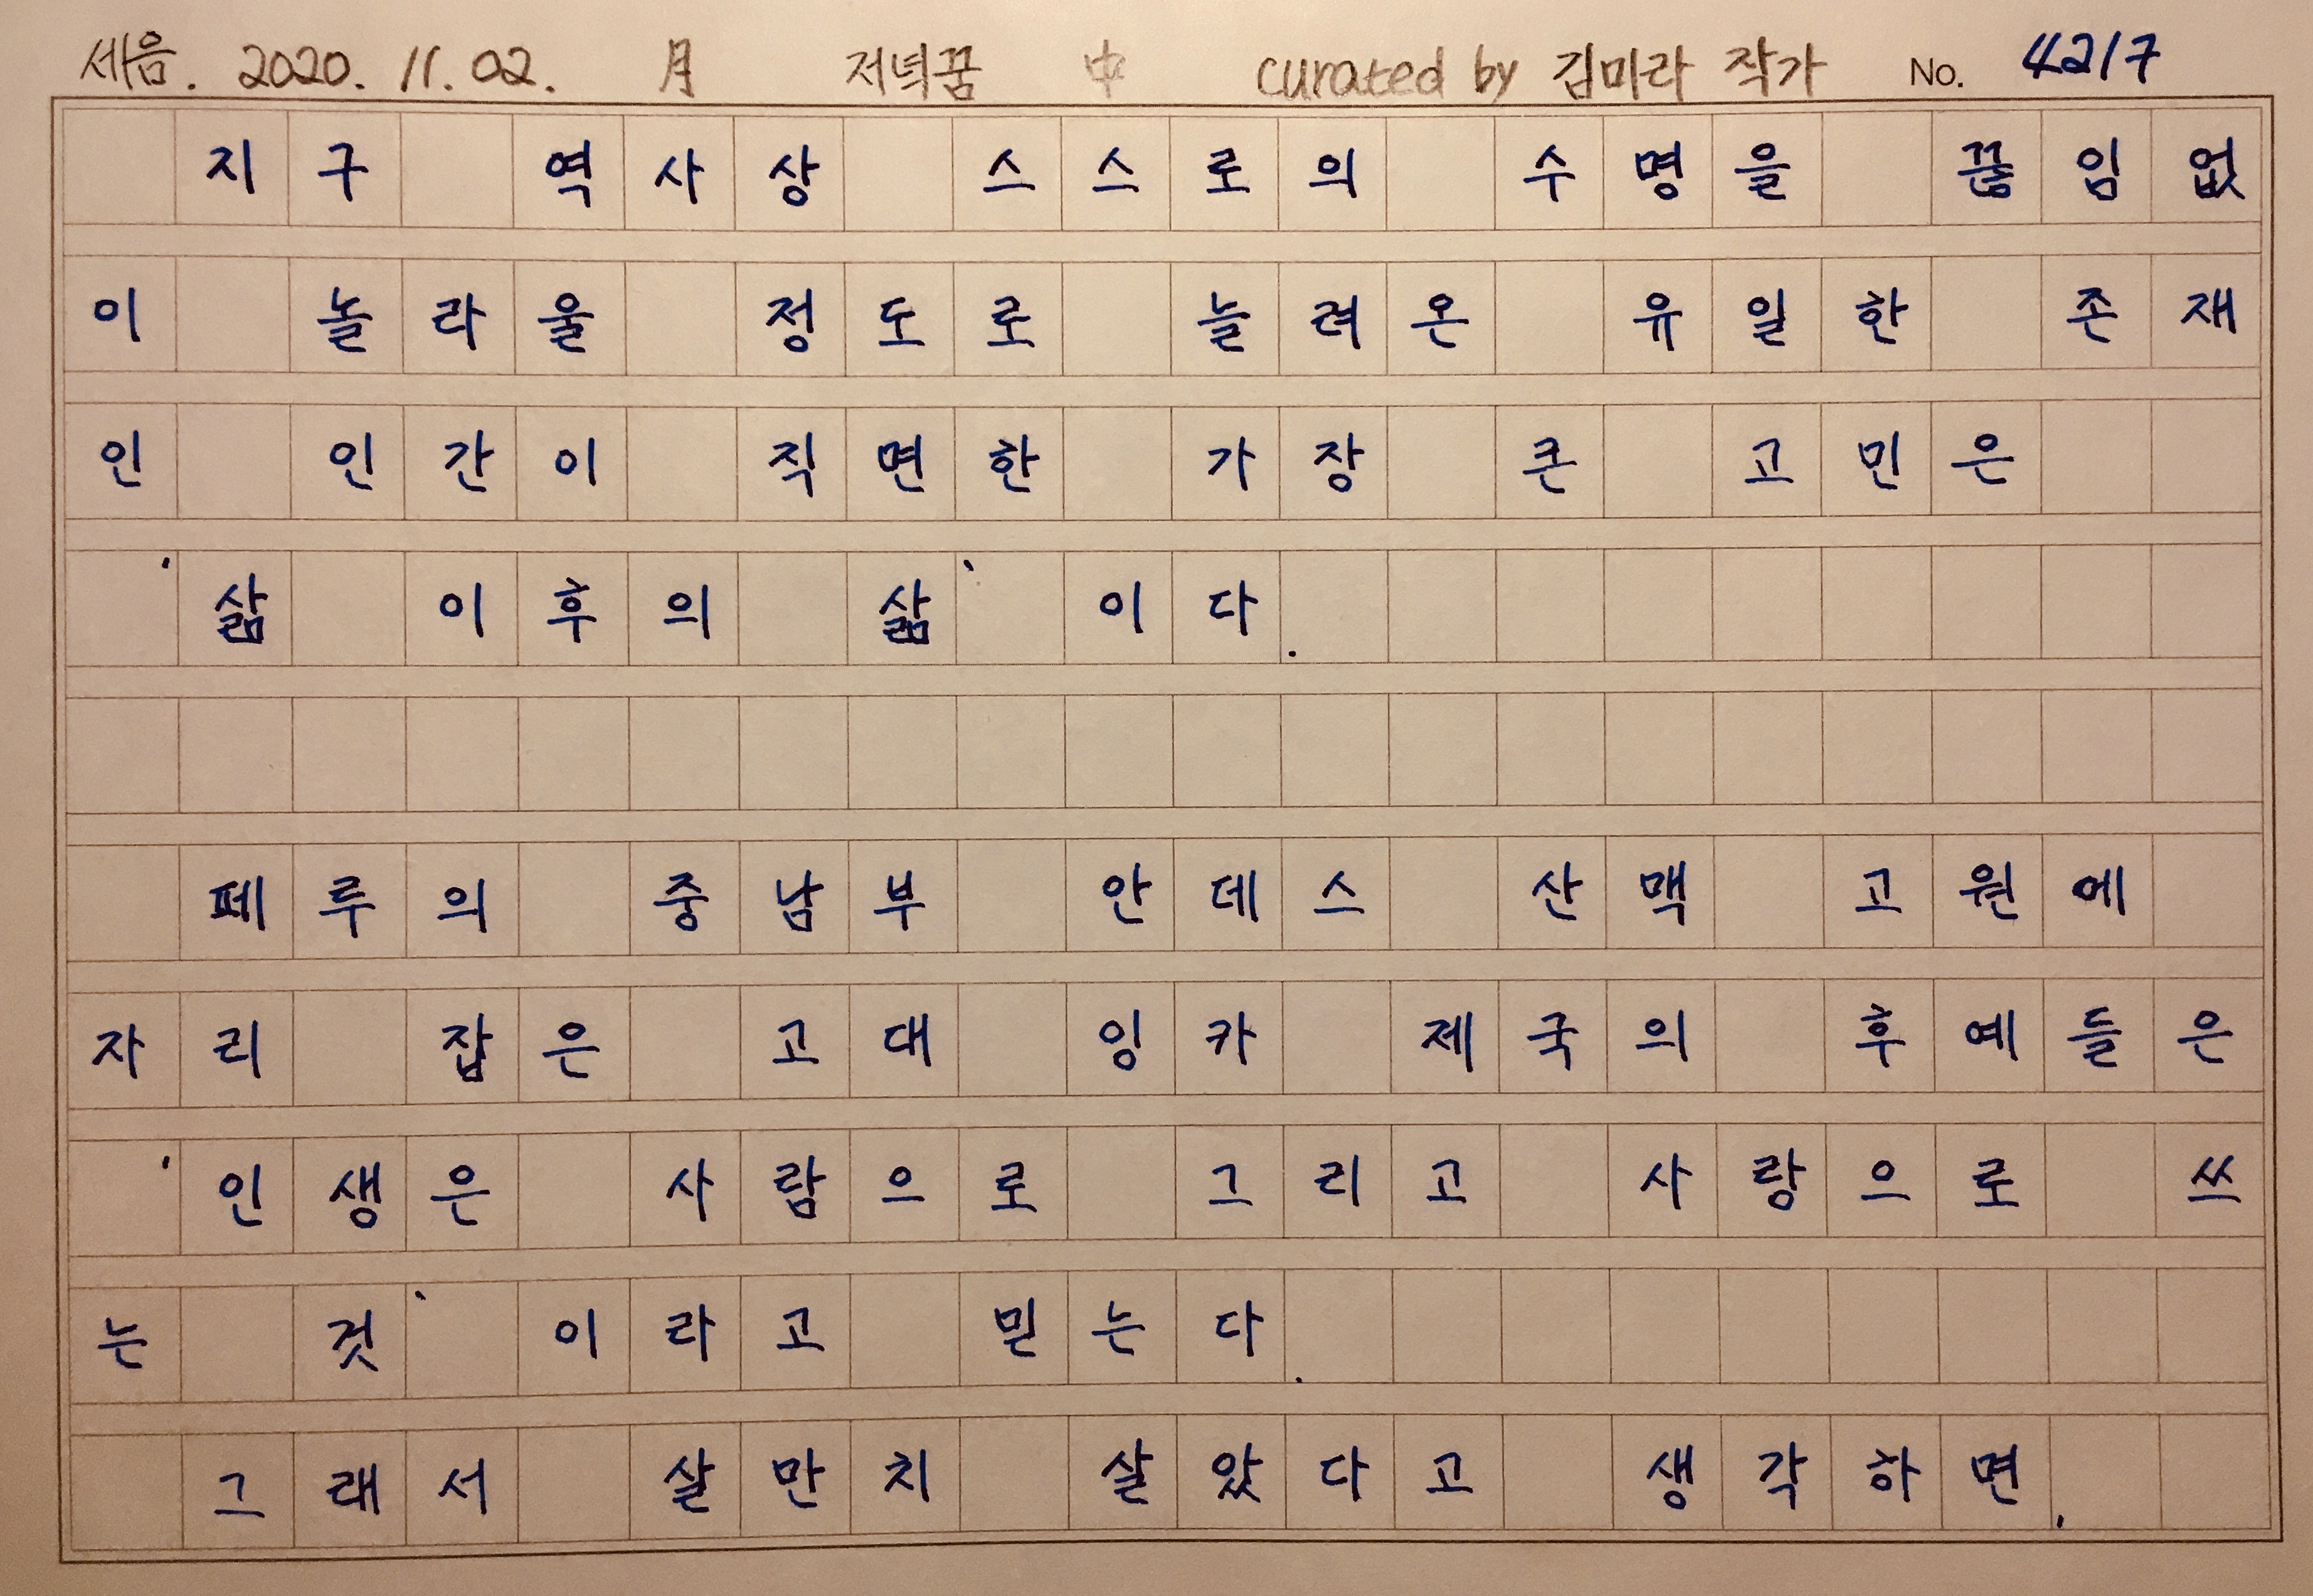 세음. 2020. 11. 02. 月 저녁꿈 中 curated by 김미라 작가 No. 4217
지구 역사상 스스로의 수명을 끊임없
이 놀라울 정도로 늘려온 유일한 존재
인 인간이 직면한 가장 큰 고민은
'삶 이후의 삶' 이다.
페루의 중남부 안데스 산맥 고원에
자리 잡은 고대 잉카 제국의 후예들은
'인생은 사람으로 그리고 사랑으로 쓰
는 것' 이라고 믿는다.
그래서 살만치 살았다고 생각하면,